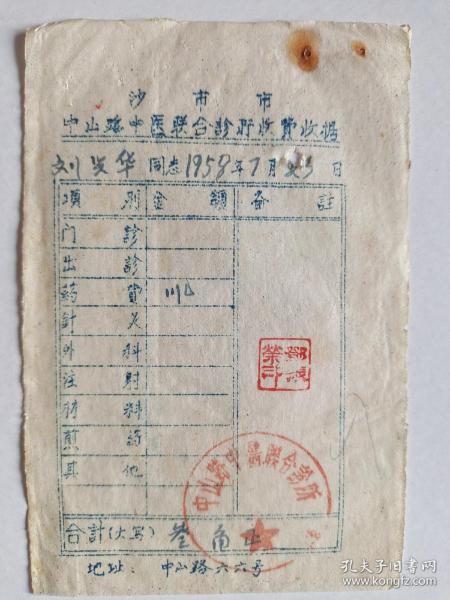 沙市市
中山路中医联合診所收費收据
刘 华 同志 1958年7月 日
項別 金額 备註
门診
出診
药費
針灸
外科
注射
材料
煎药
其他
中山路中醫联合診所
合計(大写) 叁角正
地址: 中山路六六号
孔夫子旧书网